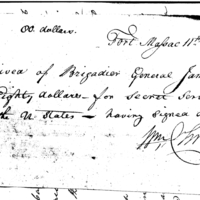 00. dollars.
Fort Massac 11th
ived of Brigadier General Jam
Eighty dollars - for secret Serv
U States - having signed
Wm